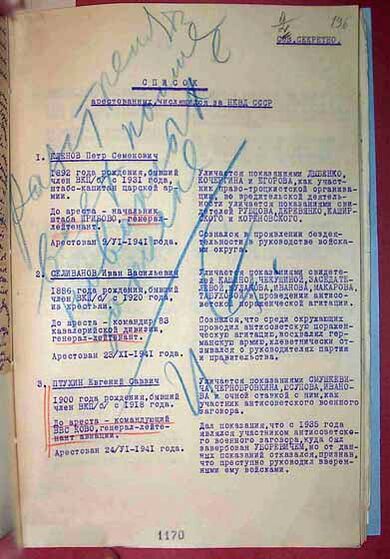 196
СОВ.СЕКРЕТНО.
СПИСОК
арестованных, числящихся за НКВД СССР
Расстрелять
всех поименованных
в списке
И. Ст.
1. КЛЕНОВ Петр Семенович
1892 года рождения, бывший
член ВКП/б/ с 1931 года,
штабс-капитан царской ар-
мии.
До ареста - начальник
штаба ПРИБОВО, генерал-
лейтенант.
Арестован 9/VI-1941 года.
Уличается показаниями ДЫБЕНКО,
КОЧЕРГИНА и ЕГОРОВА, как участ-
ник право-троцкистской организа-
ции. Во вредительской деятель-
ности уличается показаниями сви-
детелей РУБЦОВА, ДЕРЕВЯНКО, КАШИР-
СКОГО и КОРНОВСКОГО.
Сознался в проявлении бездея-
тельности в руководстве войсками
округа.
2. СЕЛИВАНОВ Иван Васильевич
1886 года рождения, бывший
член ВКП/б/ с 1920 года,
из крестьян.
До ареста - командир 83
кавалерийской дивизии,
генерал-лейтенант.
Арестован 23/XI-1941 года.
Уличается показаниями свидете-
лей
ИВАНОВА, МАКАРОВА,
в проведении антисовет-
ской пораженческой агитации.
Сознался, что среди окружающих
проводил антисоветскую пораженче-
скую агитацию, восхвалял гер-
манскую армию, клеветнически от-
зывался о руководителях партии
и правительства.
3. ПТУХИН Евгений Саввич
1900 года рождения, бывший
член ВКП/б/ с 1918 года.
До ареста - командующий
ВВС КОВО, генерал-лейте-
нант авиации.
Арестован 24/VI-1941 года.
Уличается показаниями СМУШКЕВИ-
ЧА, ЧЕРНОБРОВКИНА, ЮСУПОВА, ИВАНО-
ВА и очной ставкой с ним, как
участник антисоветского военного
заговора.
Дал показания, что с 1935 года
являлся участником антисоветско-
го военного заговора, куда был
завербован УБОРЕВИЧЕМ, но от дан-
ных показаний отказался, признав,
что преступно руководил вверен-
ными ему войсками.
1170